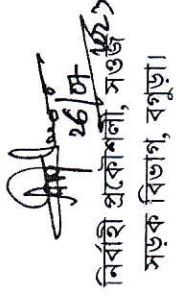 নির্বাহী প্রকৌশলী, সওজ
সড়ক বিভাগ, বগুড়া।